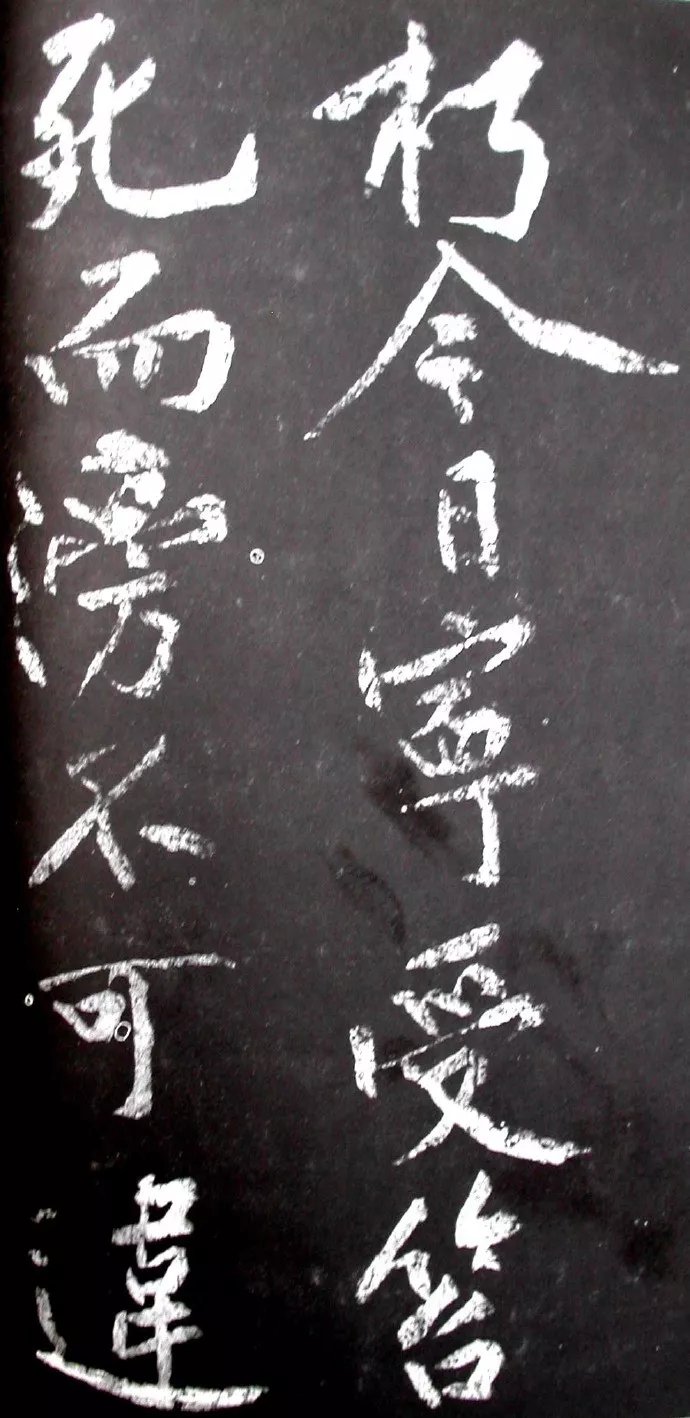 朽今日寧受笞
死而滂不可違